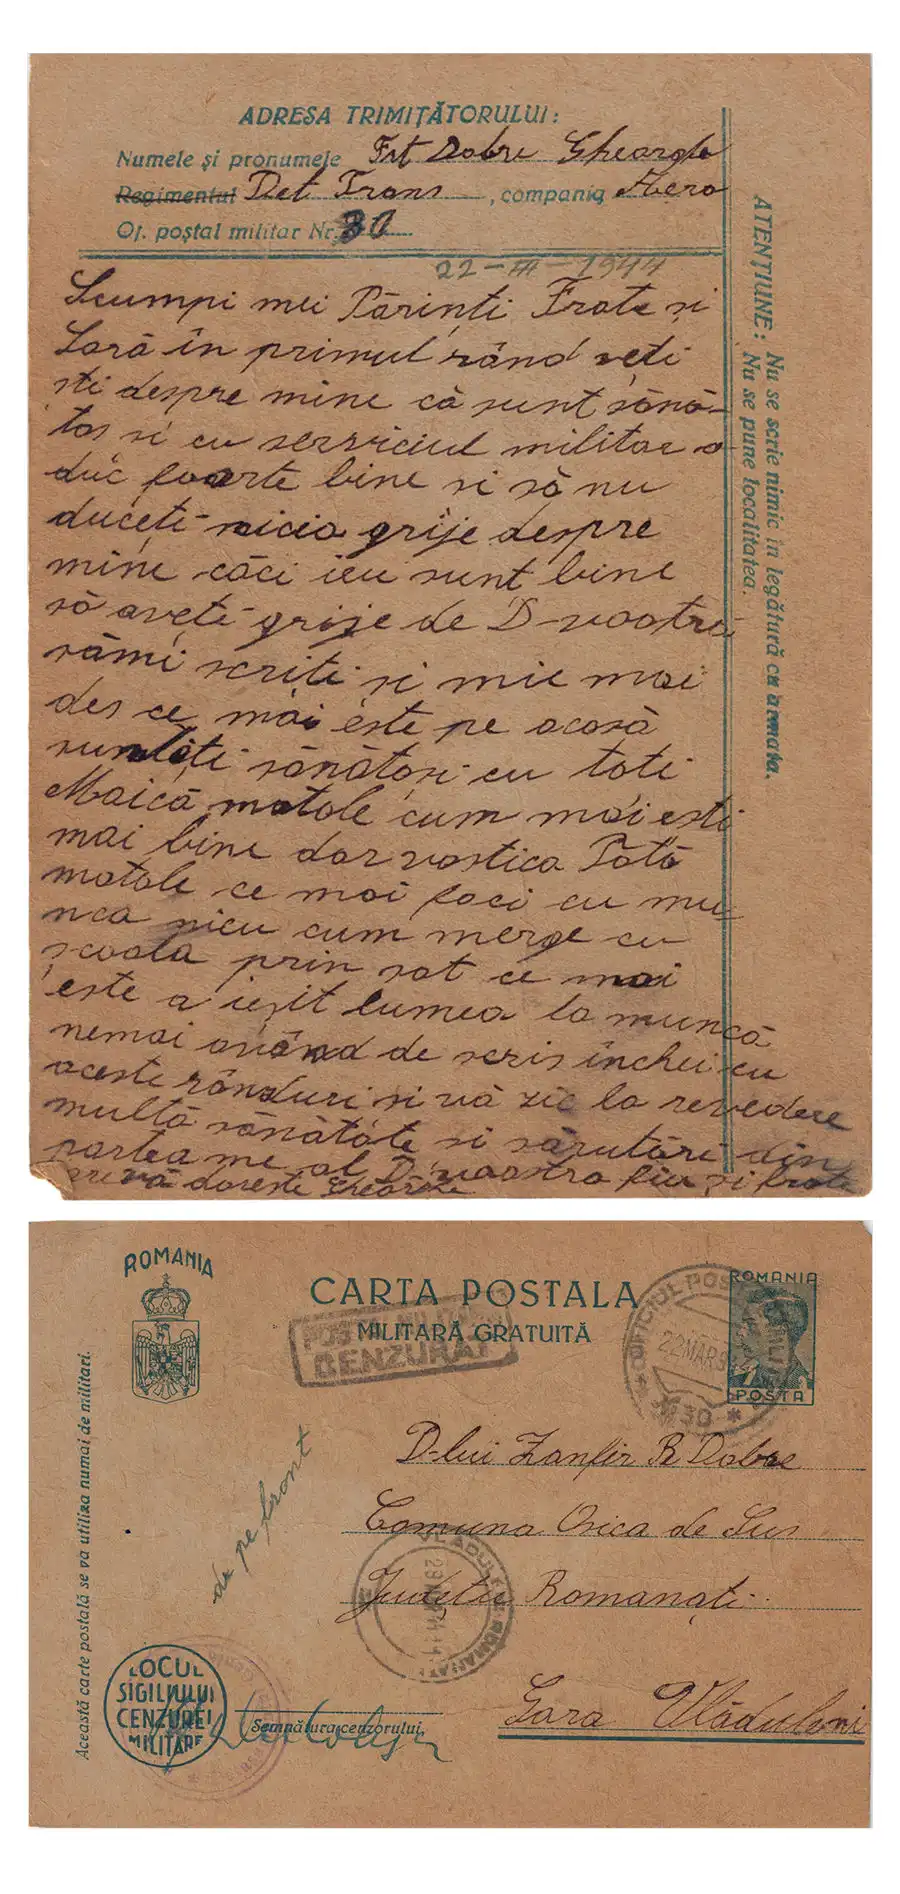 ADRESA TRIMIȚĂTORULUI:
Numele și pronumele Frt Dobre Gheorghe
Regimentul Det Trans, compania Aero
Of. poștal militar Nr. 30
22-III-1944
ATENȚIUNE: Nu se scrie nimic în legătură cu armata.
Nu se pune localitatea.
Scumpi mei Părinți Frate si
Soră în primul rând veti
sti despre mine că sunt sănă-
tos si cu serviciul militar o
duc foarte bine si să nu
duceti nicio grije despre
mine căci ieu sunt bine
să aveti grije de D-voatră
sămi scriti si mie mai
des ce mai este pe acasă
sunteti sănătosi cu toti
Maică matale cum mai esti
mai bine dar vostica Tată
matale ce mai faci cu mu
nca nicu cum merge cu
scoala prin sat ce mai
este a iesit lumea la muncă
nemai având de scris închei cu
aceste rânduri si vă zic la revedere
multă sănătate si sărutări din
partea me al D-voastra fiu si frate
vă doreste
ROMANIA
CARTA POSTALA
MILITARĂ GRATUITĂ
CENZURAT
OFICIUL POSTAL MILITAR
22 MAR 944
30
ROMANIA
POSTA
Această carte poștală se va utiliza numai de militari.
de pe front
D-lui Zanfir R Dobre
Comuna Osica de Sus
Judetu Romanați
Gara Vlăduleni
VLADULENI ROMANATI
LOCUL
SIGILIULUI
CENZUREI
MILITARE
Semnătura cenzorului,